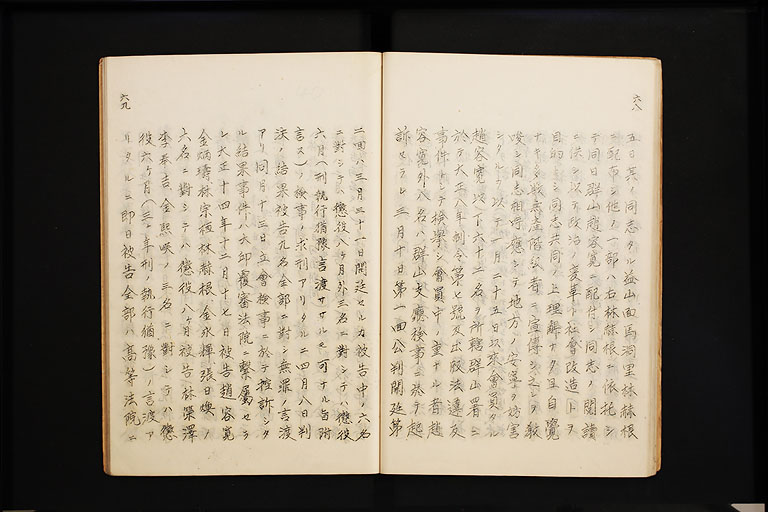 六八
五日其ノ同志タル益山面馬洞里林赫根
ニ配布シ他ノ一部ハ右林赫根ニ依托シ
テ同日群山趙容寛ニ配付シ同志ノ閲讀
ニ供シ以テ政治ノ変革ト社會改造トヲ
目的シ同志共同ノ上理解シタル且自覺
ナキ無産階級者ニ宣傳シ之レヲ教
唆シ同志相呼應シテ地方ノ安寧ヲ妨害
シタルヲ以テ一月二十五日以來會員タル
趙容寛以下六十二名ヲ所轄群山署ニ
於テ大正八年制令第七號及出版法違反
事件トシテ檢擧シ會員中ノ重ナル者趙
容寛外八名ハ群山支廳檢事ニ於テ起
訴セラレ三月十日第一回公判開廷第
六九
二回ハ三月三十一日開廷セルカ被告中ノ六名
ニ對シテハ懲役八ケ月外三名ニ對シテハ懲役
六月(刑執行猶豫言渡サルルモ可ナル旨附
言ス)ノ檢事ノ求刑アリタルニ四月八日判
決ノ結果被告九名全部ニ對シ無罪ノ言渡
アリ同月十三日立會檢事ニ於テ控訴シタ
ル結果事件ハ大邱覆審法院ニ繫属セラ
レ大正十四年十二月十七日被告趙容寛
金炳璹林宗桓林赫根金永輝張日煥ノ
六名ニ對シテハ懲役八ケ月被告林榮澤
李奉吉金熙暎ノ三名ニ對シテハ懲
役六ケ月(三ケ年刑ノ執行猶豫)ノ言渡ア
リタルニ即日被告全部ハ高等法院ニ